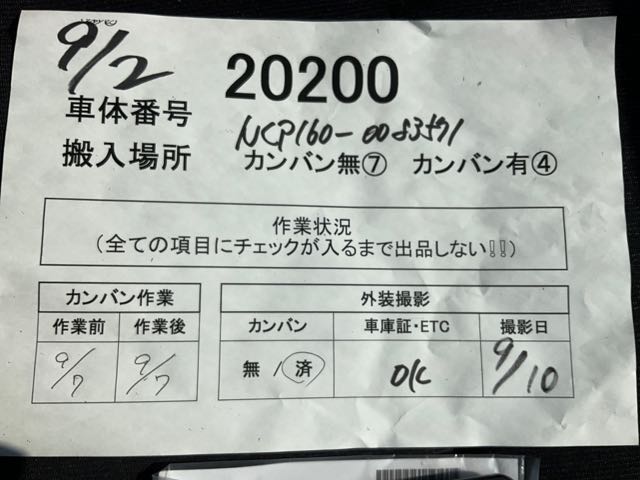 9/2
20200
車体番号 NCP160-0083571
搬入場所 カンバン無⑦ カンバン有④
作業状況
(全ての項目にチェックが入るまで出品しない!!)
カンバン作業 外装撮影
作業前 作業後 カンバン 車庫証・ETC 撮影日
9/7 9/7 無 / 済 O/C 9/10